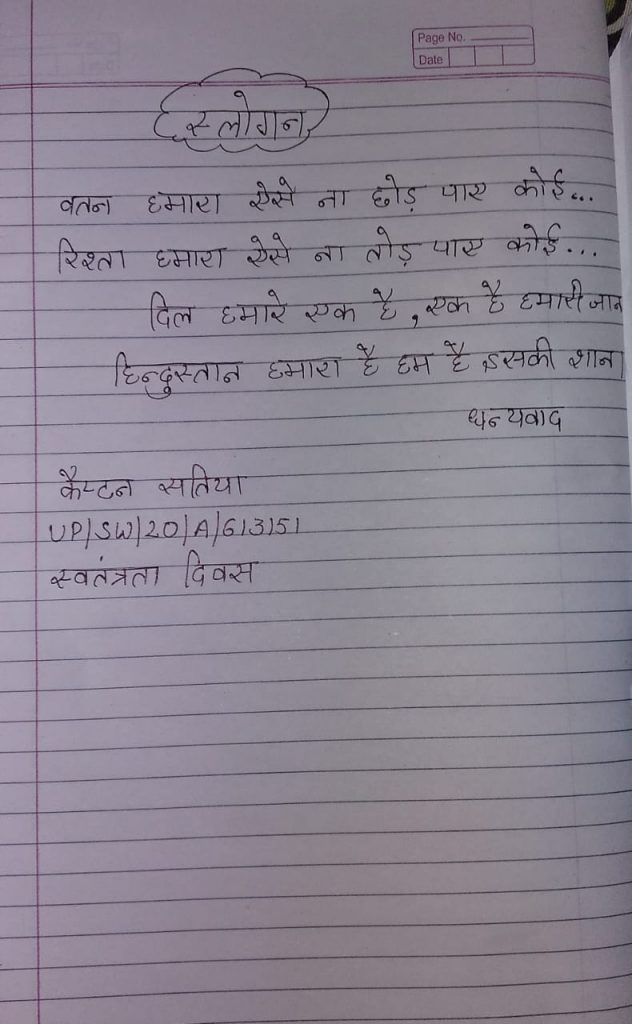 Page No.
Date
स्लोगन
वतन हमारा ऐसे ना छोड़ पाए कोई...
रिश्ता हमारा ऐसे ना तोड़ पाए कोई...
दिल हमारे एक है, एक है हमारी जान
हिन्दुस्तान हमारा है हम है इसकी शान
धन्यवाद
कैप्टन सतिया
UP/SW/20/A/613151
स्वतंत्रता दिवस